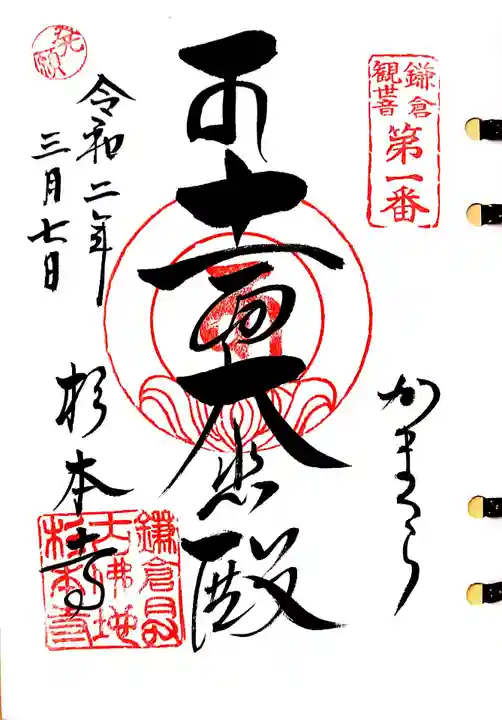 鎌倉
観世音
第一番
かまくら
十一面大悲殿
杉本寺
令和二年
三月七日
発願
鎌倉最
大佛地
杉本寺